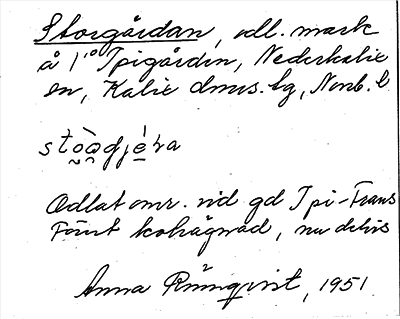 Storgårdan, odl. mark
å 1:o Ipigården, Nederkalix
en, Kalix dmvs.lg, Nonb. l.
stò̰a̯djé̱ra
Odlat omr. vid gd Ipi-Frans
Förut kohägnad, nu delvis
Anna Rönnqvist, 1951